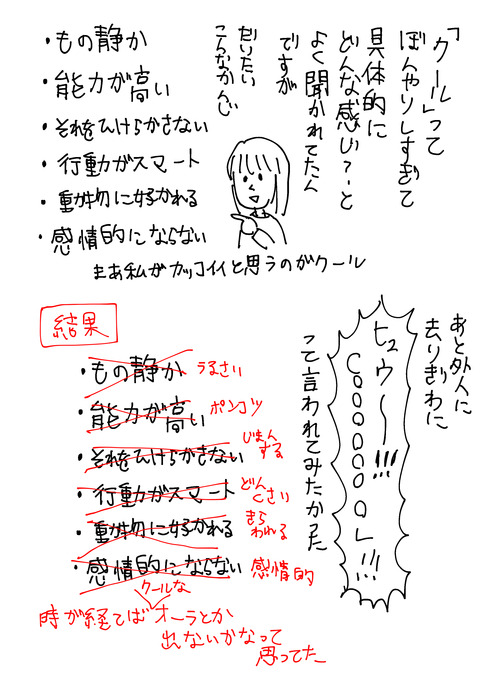 「クール」って
ぼんやりしすぎて
具体的に
どんな感じ？ーと
よく聞かれてたん
ですが
だいたい
こんなかんじ
・もの静か
・能力が高い
・それをひけらかさない
・行動がスマート
・動物に好かれる
・感情的にならない
まあ私がカッコイイと思うのがクール
あと外人に
去りぎわに
ヒュウ〜!!!
COOOOOOOL!!!
って言われてみたかった
結果
・もの静か うるさい
・能力が高い ポンコツ
・それをひけらかさない じまんする
・行動がスマート どんくさい
・動物に好かれる きらわれる
・感情的にならない 感情的
時が経てばクールなオーラとか
出ないかなって
思ってた